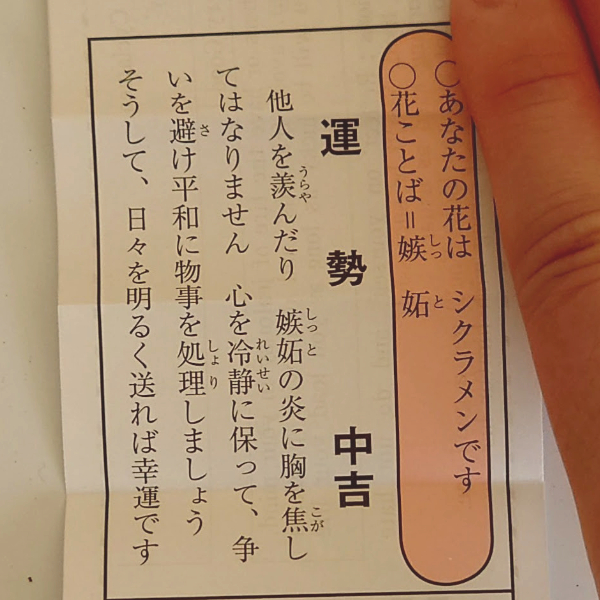 ○あなたの花は シクラメンです
○花ことば＝嫉妬
運勢 中吉
他人を羨んだり 嫉妬の炎に胸を焦し
てはなりません 心を冷静に保って、争
いを避け平和に物事を処理しましょう
そうして、日々を明るく送れば幸運です